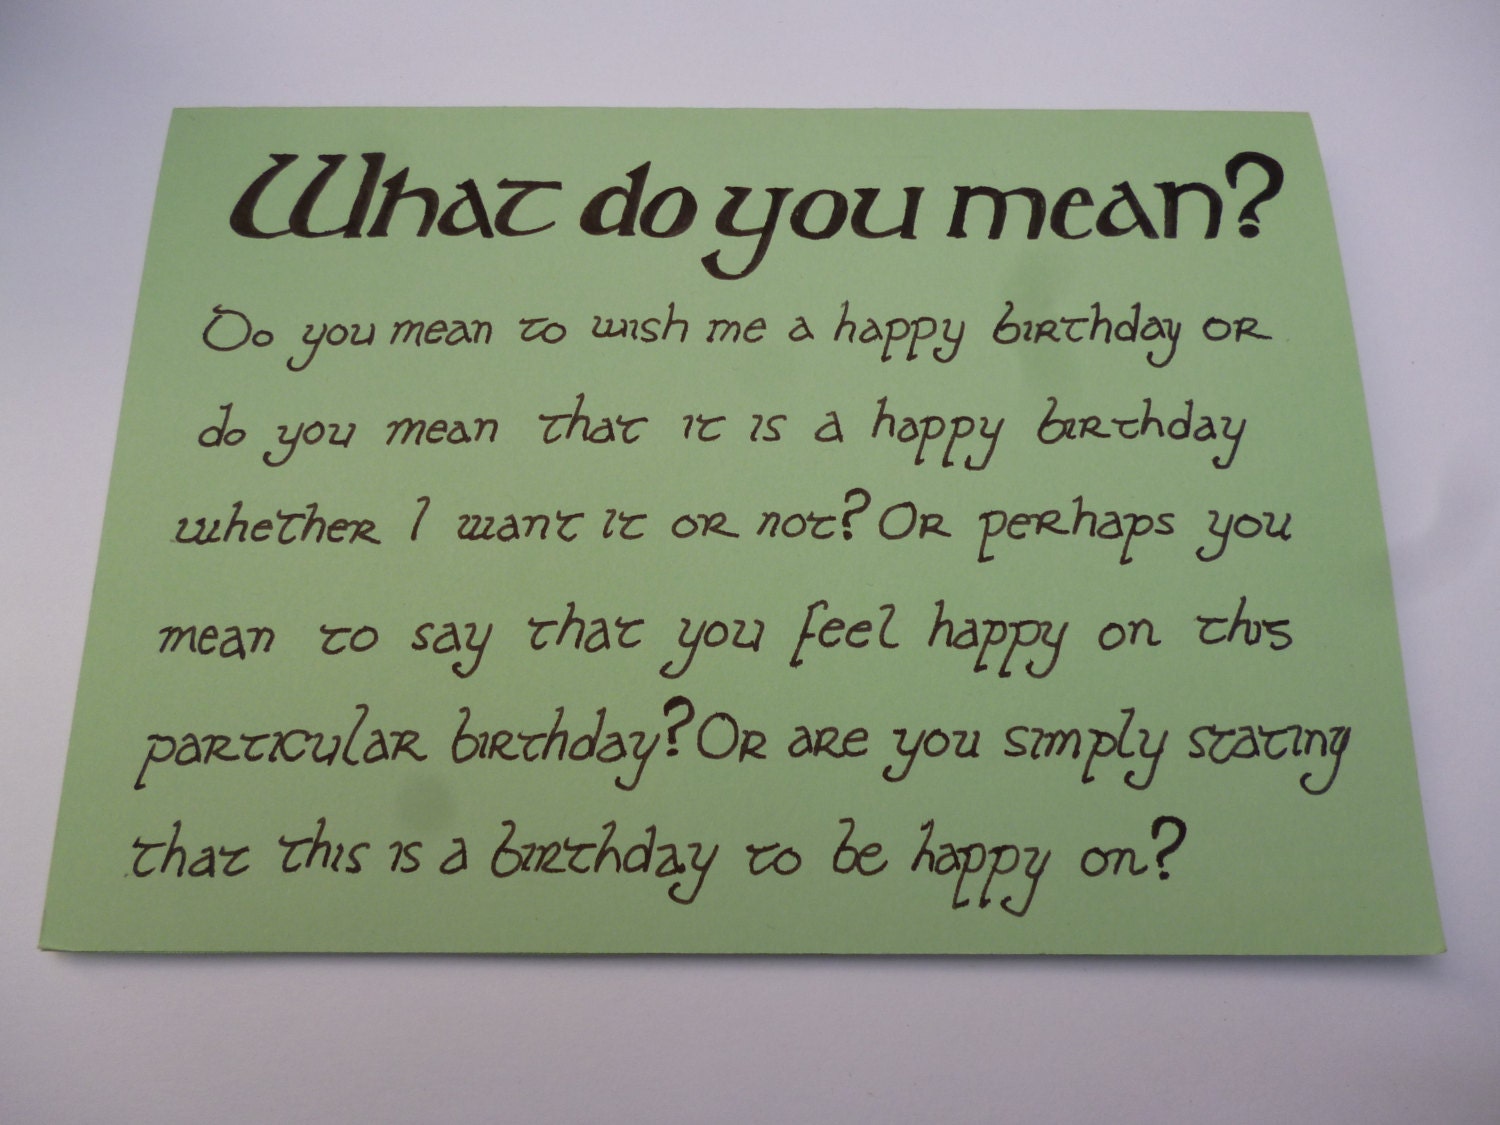 What do you mean?
Do you mean to wish me a happy birthday or
do you mean that it is a happy birthday
whether I want it or not? Or perhaps you
mean to say that you feel happy on this
particular birthday? Or are you simply stating
that this is a birthday to be happy on?